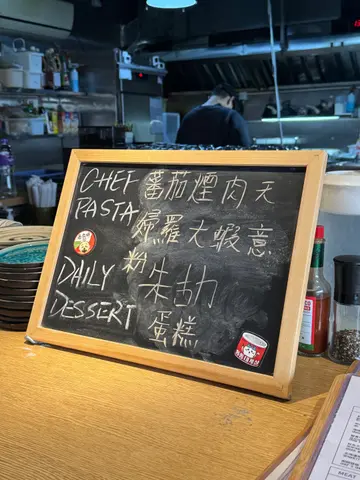 CHEF 番茄煙肉天
PASTA 婦羅大蝦意
粉
DAILY 朱古力
DESSERT 蛋糕
MEAT